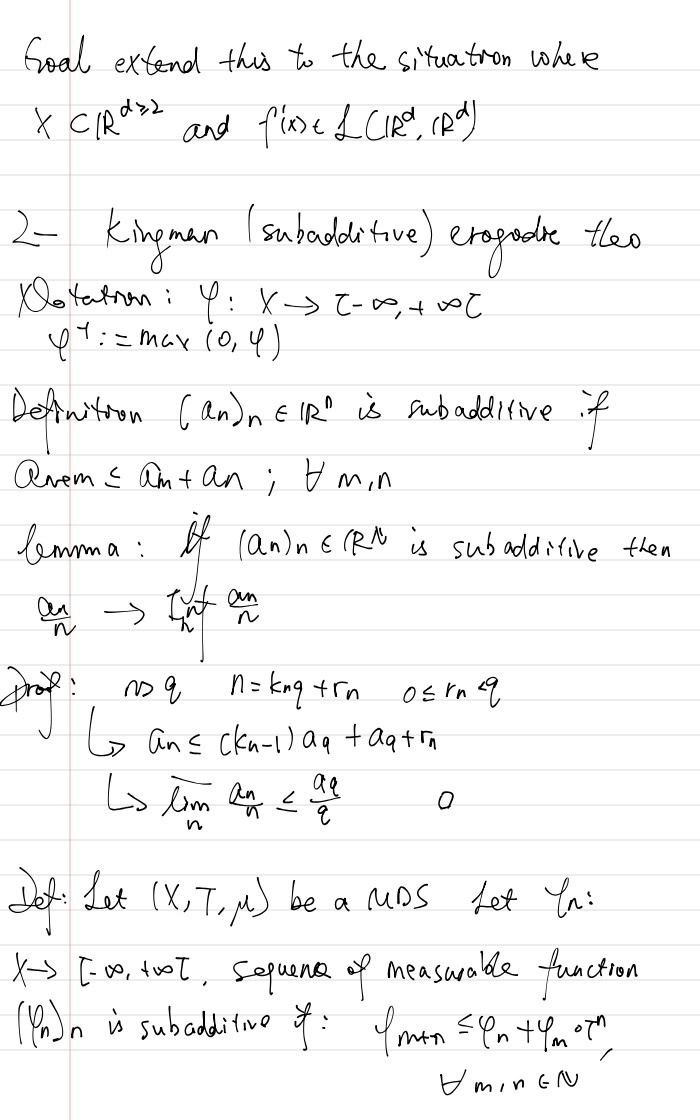 Goal extend this to the situation where
X ⊂ ℝ^{d≥2} and f'(x) ∈ ℒ(ℝ^d, ℝ^d)
2- Kingman (subadditive) erogodic theo
Notation : φ : X → [-∞, +∞[
φ^+ := max (0, φ)
Definition (a_n)_n ∈ ℝ^n is subadditive if
a_{n+m} ≤ a_m + a_n ; ∀ m, n
lemma : If (a_n)_n ∈ ℝ^ℕ is subadditive then
a_n/n → Inf_n a_n/n
Proof : n>q n = k_n q + r_n 0 ≤ r_n < q
↳ a_n ≤ (k_n-1) a_q + a_{q+r_n}
↳ \overline{lim}_n a_n/n ≤ a_q/q □
Def: Let (X, T, μ) be a MDS Let φ_n :
X → [-∞, +∞[, sequence of measurable function
(φ_n)_n is subadditive if : φ_{m+n} ≤ φ_n + φ_m ∘ T^n,
∀ m, n ∈ ℕ